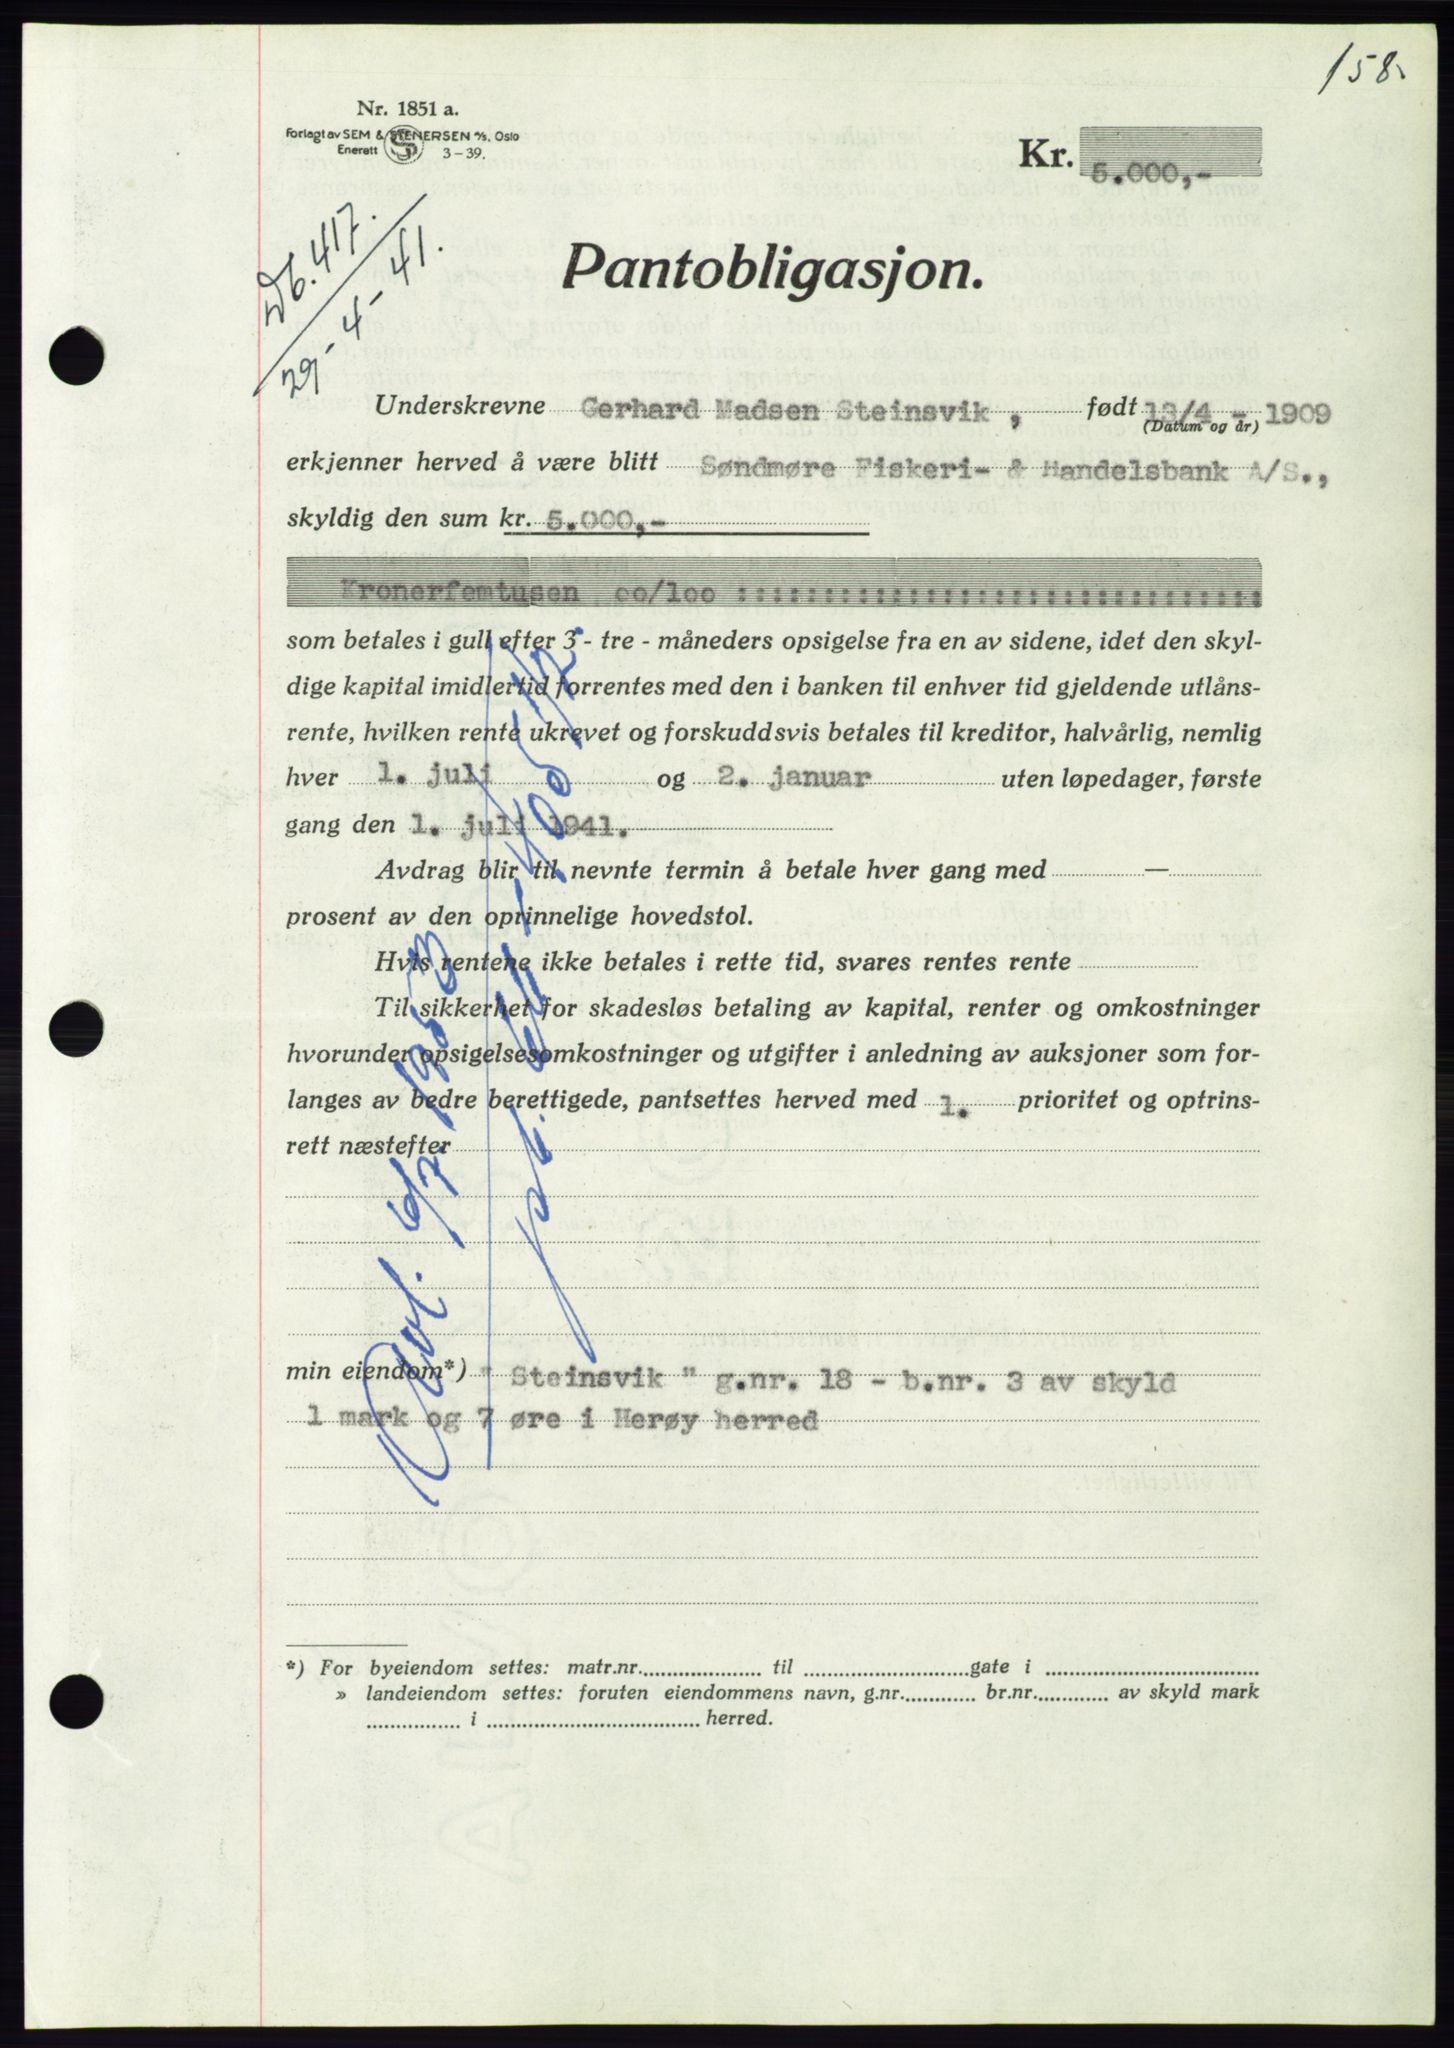 158.
Nr. 1851 a.
Forlagt av SEM & STENERSEN A/S, Oslo
Enerett 3-39.
Kr. 5.000,-
Db. 417.
29-4-41.
Pantobligasjon.
Underskrevne Gerhard Madsen Steinsvik, født 13/4 - 1909
(Datum og år)
erkjenner herved å være blitt Søndmøre Fiskeri- & Handelsbank A/S.,
skyldig den sum kr. 5.000,-
Kronerfemtusen oo/loo ::::::::::::::::::::::::::::::
som betales i gull efter 3 - tre - måneders opsigelse fra en av sidene, idet den skyl-
dige kapital imidlertid forrentes med den i banken til enhver tid gjeldende utlåns-
rente, hvilken rente ukrevet og forskuddsvis betales til kreditor, halvårlig, nemlig
hver 1. juli og 2. januar uten løpedager, første
gang den 1. juli 1941.
Avdrag blir til nevnte termin å betale hver gang med —
prosent av den oprinnelige hovedstol.
Hvis rentene ikke betales i rette tid, svares rentes rente
Til sikkerhet for skadesløs betaling av kapital, renter og omkostninger
hvorunder opsigelsesomkostninger og utgifter i anledning av auksjoner som for-
langes av bedre berettigede, pantsettes herved med 1. prioritet og optrins-
rett næstefter
min eiendom*) " Steinsvik " g.nr. 18 - b.nr. 3 av skyld
1 mark og 7 øre i Herøy herred
Avl. 6/7 1953
*) For byeiendom settes: matr.nr. til gate i
» landeiendom settes: foruten eiendommens navn, g.nr. br.nr. av skyld mark
i herred.